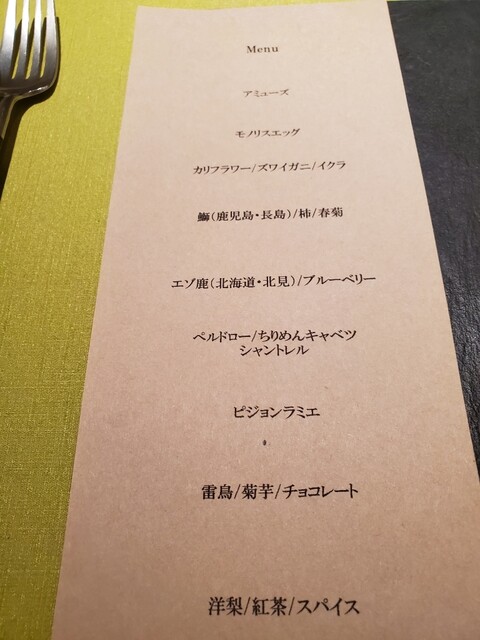 Menu
アミューズ
モノリスエッグ
カリフラワー/ズワイガニ/イクラ
鰤(鹿児島・長島)/柿/春菊
エゾ鹿(北海道・北見)/ブルーベリー
ペルドロー/ちりめんキャベツ
シャントレル
ピジョンラミエ
雷鳥/菊芋/チョコレート
洋梨/紅茶/スパイス